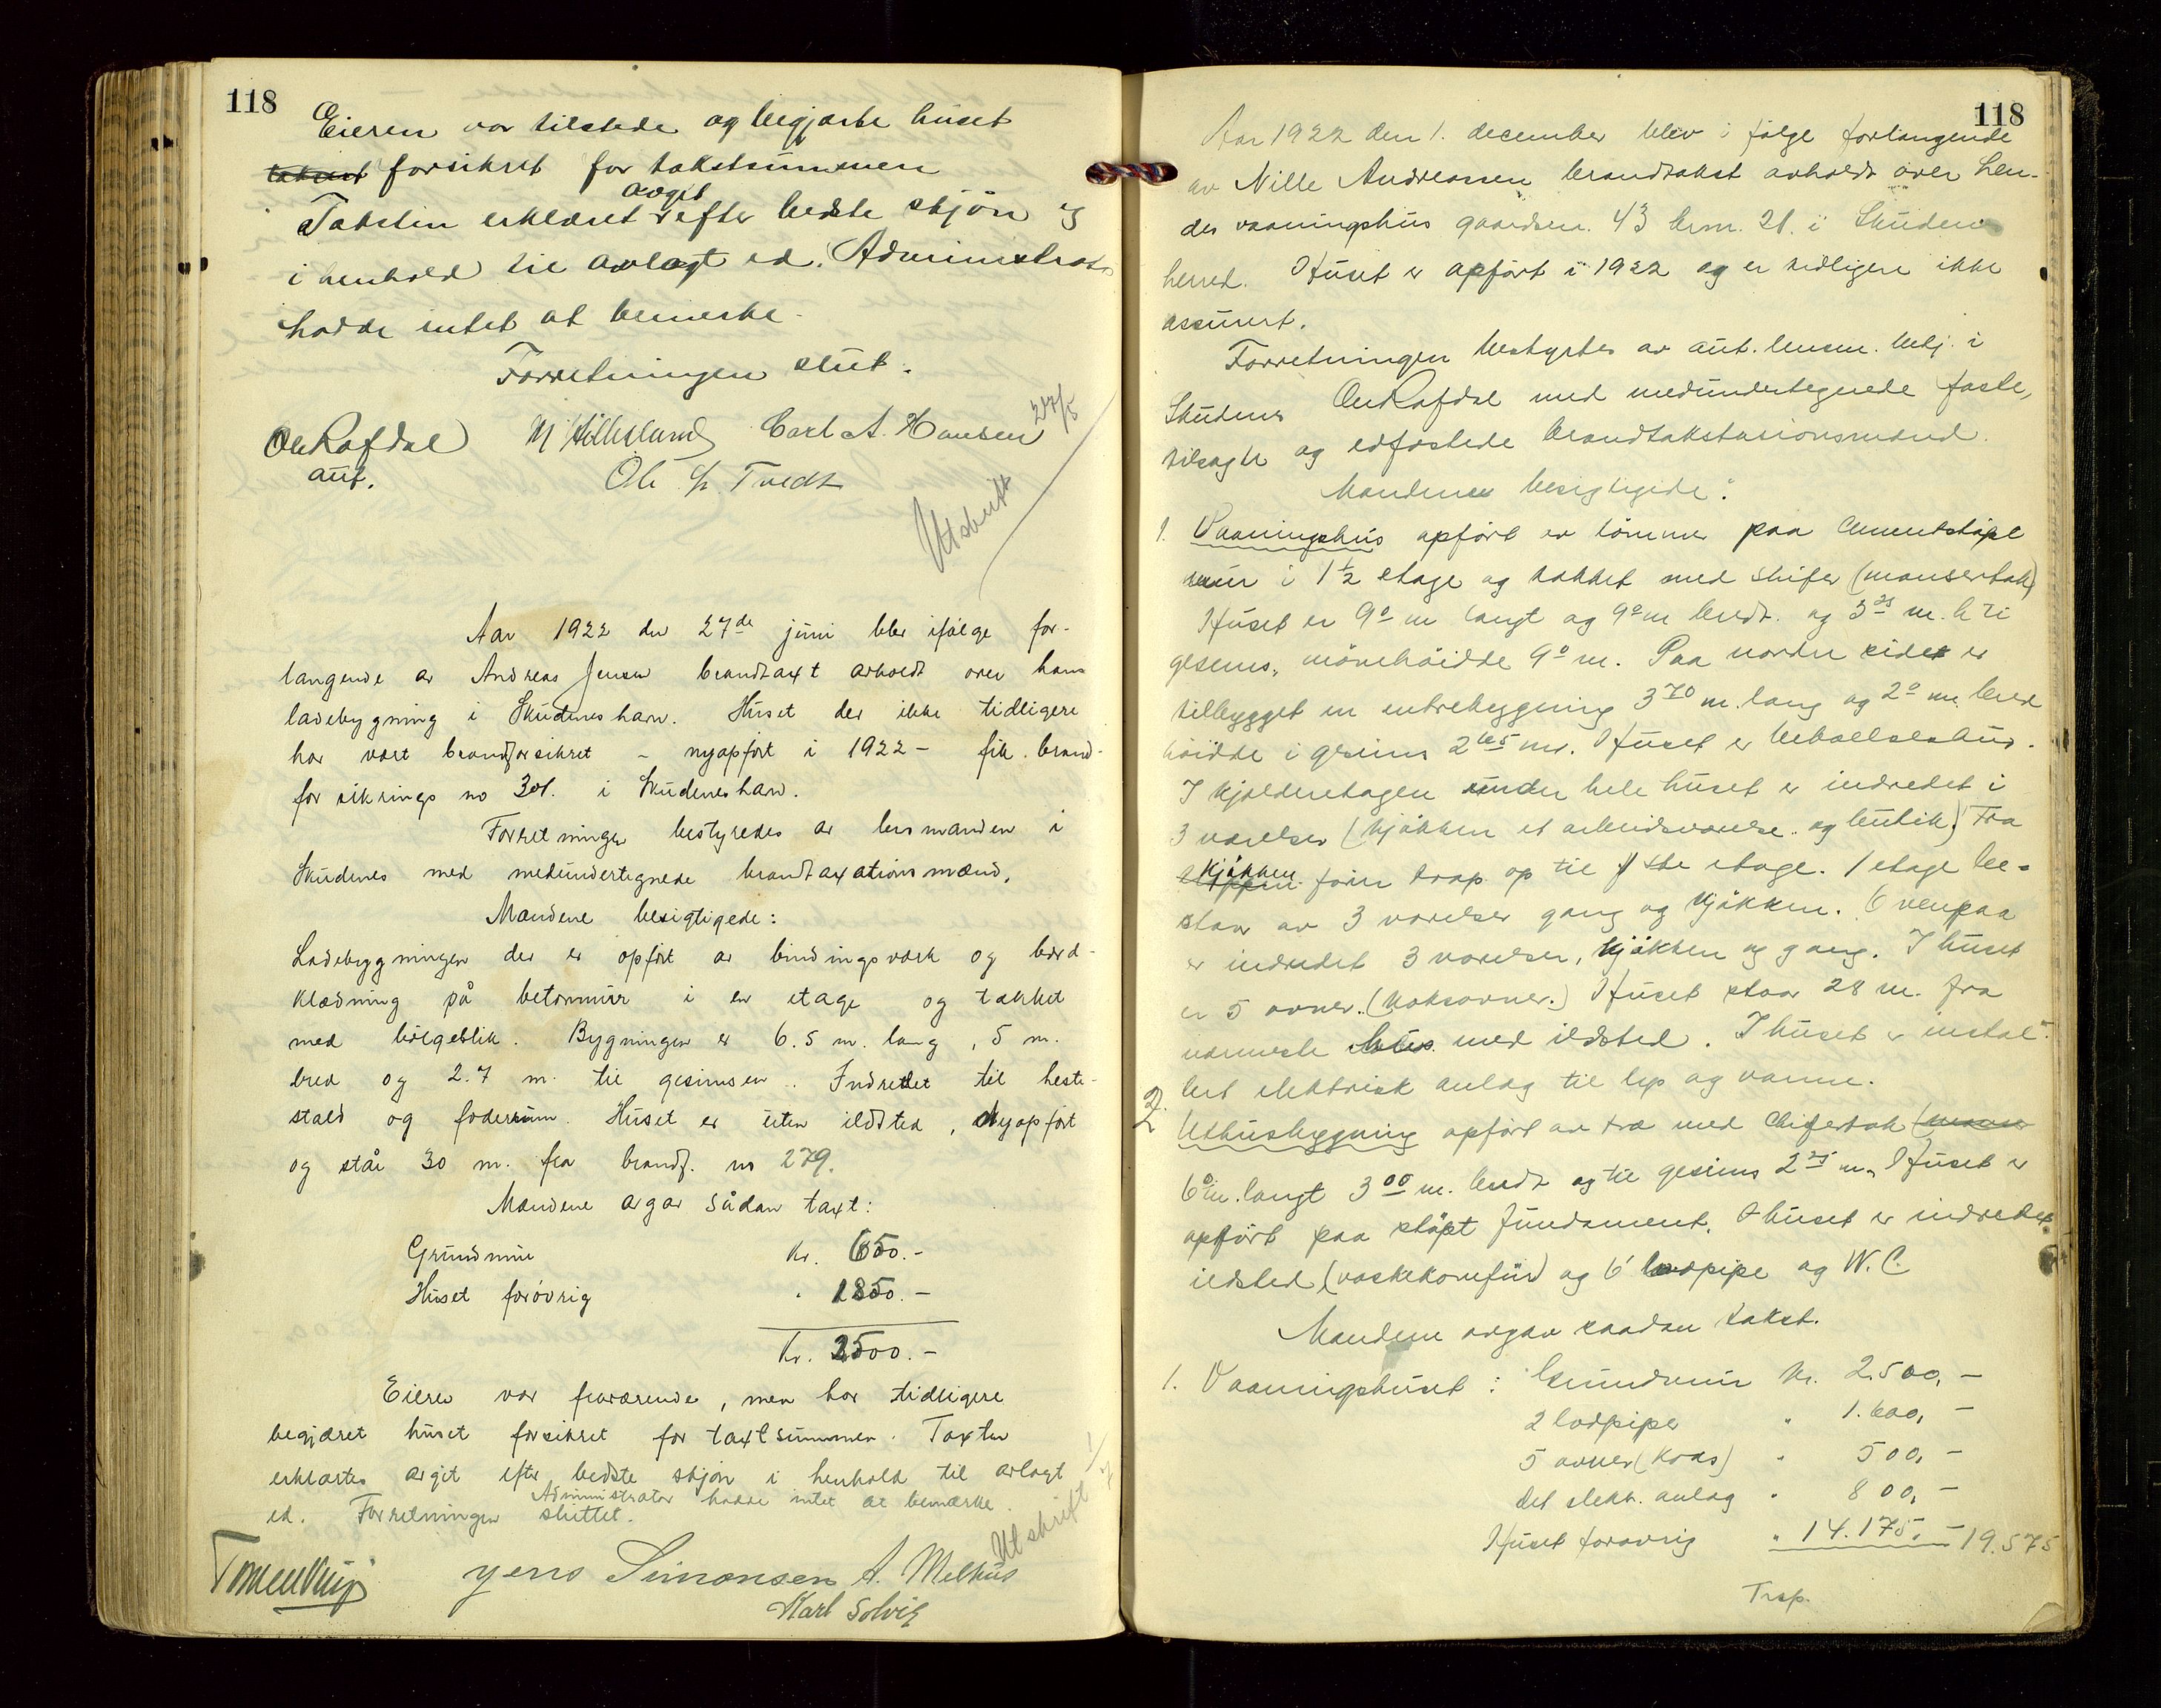 118
Eieren var tilstede og begjærte huset
takset forsikret for takstsummen
avgit
Taksten erklæret efter bedste skjøn og
i henhold til avlagt ed. Administrator
hadde intet at bemerke.
Forretningen slut.
Ole Rafdal M Hillesland Carl A. Hansen
aut. Ole Tvedt
27/5
Utskrift
Aar 1922 den 27de juni blev ifølge for-
langende av Andreas Jensen brandtaxt avholdt over hans
ladebygning i Skudeneshavn. Huset der ikke tidligere
har vært brandforsikret – nyopført i 1922 – fik brand-
forsikrings no 301. i Skudeneshavn.
Forretningen bestyredes av lensmanden i
Skudenes med medundertegnede brandtaxationsmænd.
Mændene besigtigede:
Ladebygningen der er opført av bindingsværk og bord-
klædning på betonmur i en etage og tækket
med bølgeblik. Bygningen er 6.5 m. lang, 5 m.
bred og 2.7 m. til gesimsen. Indredet til heste-
stald og foderrum. Huset er uten ildsted, nyopført
og står 30 m. fra brandf. no 279.
Mændene avgav sådan taxt:
Grundmur Kr. 650.-
Huset forøvrig " 1850.-
Kr. 2500.-
Eieren var fraværende, men har tidligere
begjæret huset forsikret for taxtsummen. Taxten
erklærtes avgit efter bedste skjøn i henhold til avlagt
Administrator hadde intet at bemærke.
ed. Forretningen sluttet.
Utskrift
Jens Simonsen A. Melhus
Karl Solvig
118
Aar 1922 den 1. december blev i følge forlangende
av Nille Andreassen brandtakst avholdt over hen-
des vaaningshus gaardsn. 43 brn. 21. i Skudenes
herred. Huset er opført i 1922 og er tidligere ikke
assurert.
Forretningen bestyrtes av aut. lensm. betj. i
Skudenes Ole Rafdal med medundertegnede faste,
tilsagte og edfæstede brandtakstasionsmænd.
Mændene besigtigede:
1. Vaaningshus opført av tømmer paa cementstøpt
mur i 1 1/2 etage og tækket med skifer (mansertak)
Huset er 9 0 m langt og 9 0 m bredt og 3 25 m. h ti
gesims, mønehøidde 9 0 m. Paa nordre side er
tilbygget en entrebygning 3 70 m. lang og 2 0 m. bred
høidde i gesims 2 65 m. Huset er beboelseshus.
I kjelderetagen under hele huset er indredet i
3 værelser (kjøkken et arbeidsværelse og butik.) Fra
kjøkken fører trap op til 1ste etage. 1 etage be-
staar av 3 værelser gang og kjøkken. Ovenpaa
er indredet 3 værelser, kjøkken og gang. I huset
er 5 ovner. (koksovner.) Huset staar 28 m. fra
nærmeste hus med ildsted. I huset er instal-
lert elektrisk anlæg til lys og varme.
2. Uthusbygning opført av træ med skifertak (manser
6 0 m. langt 3 00 m. bredt og til gesims 2 25 m. Huset er
opført paa støpt fundament. I huset er indredet
ildsted (vaskekomfur) og 1 lodpipe og W.C.
Mændene avgav saadan takst.
1. Vaaningshuset: Grundmur Kr. 2.500,-
2 lodpiper " 1.600,-
5 ovner (koks) " 500,-
det elektr. anlæg " 800,-
Huset forøvrig " 14.175,- 19.575
Trsp.